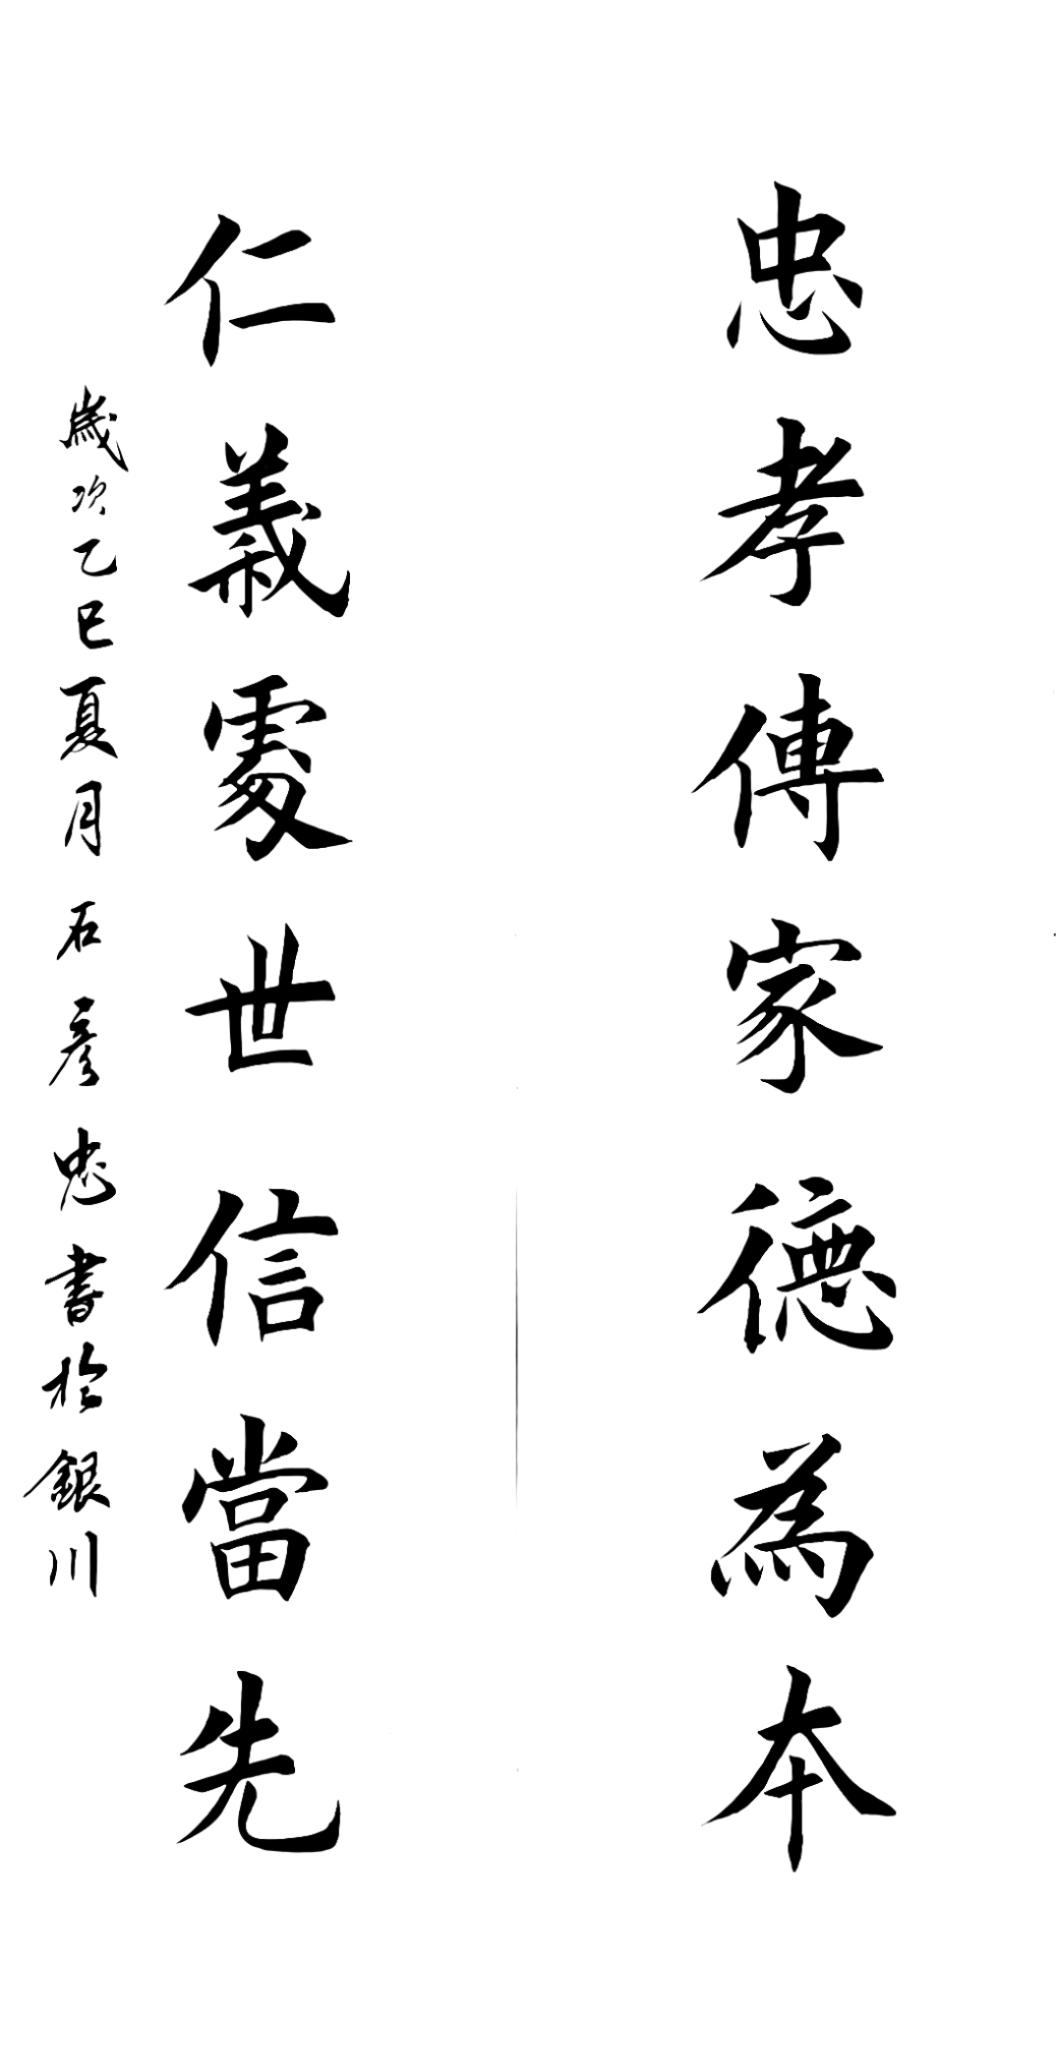 忠孝傳家德為本
仁義處世信當先
歲次乙巳夏月石彥忠書於銀川